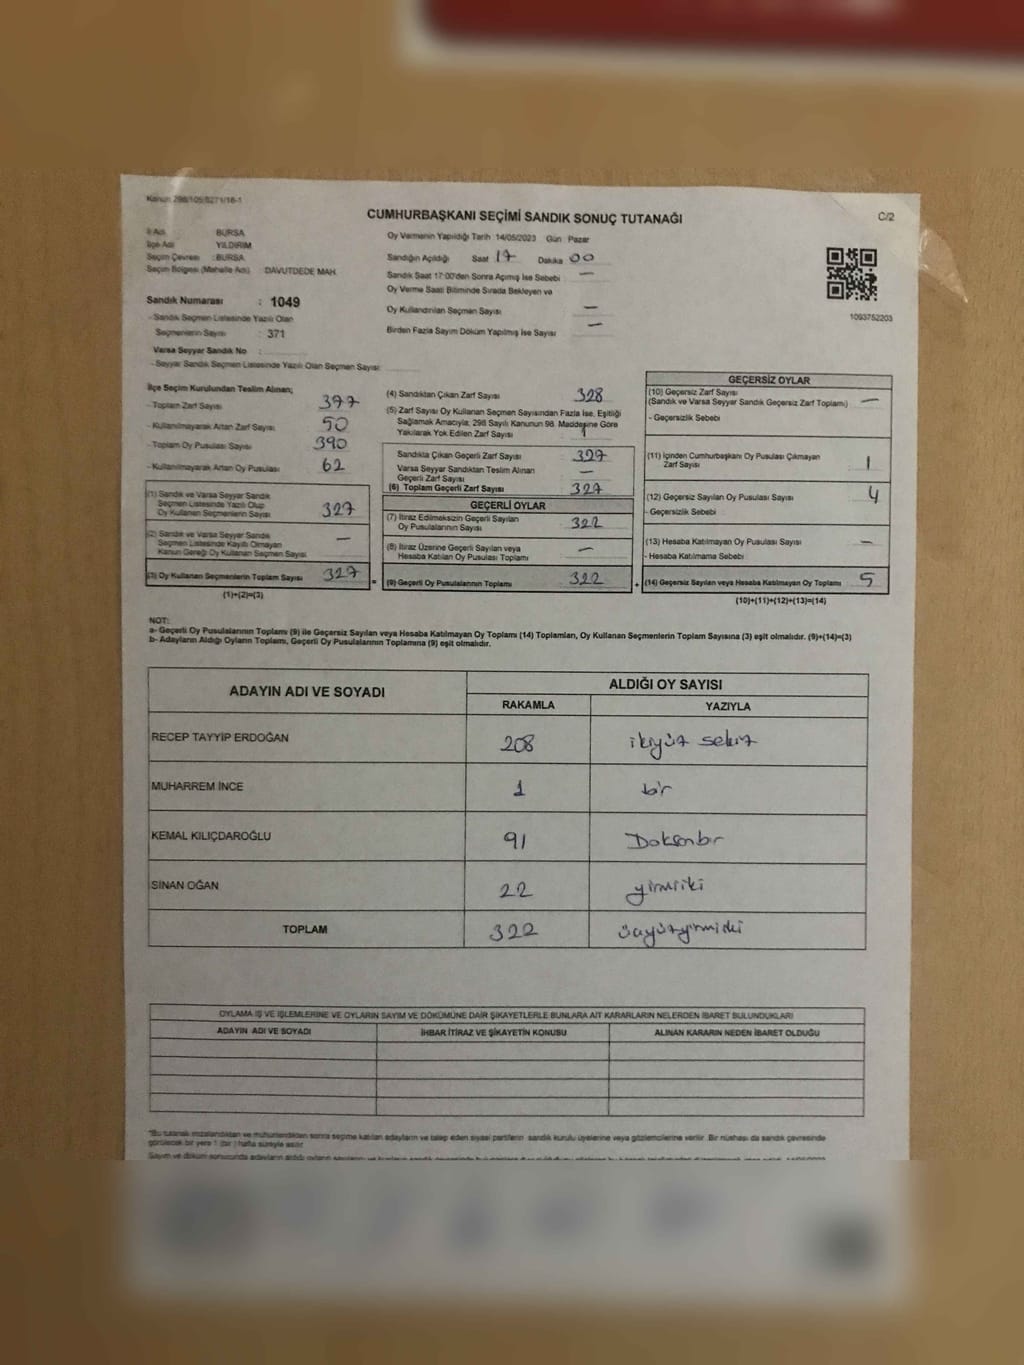 Kanun 298/105/6271/16-1
CUMHURBAŞKANI SEÇİMİ SANDIK SONUÇ TUTANAĞI
C/2
İl Adı : BURSA
İlçe Adı : YILDIRIM
Seçim Çevresi : BURSA
Seçim Bölgesi (Mahalle Adı) DAVUTDEDE MAH.
Sandık Numarası : 1049
- Sandık Seçmen Listesinde Yazılı Olan
Seçmenlerin Sayısı : 371
Varsa Seyyar Sandık No :
- Seyyar Sandık Seçmen Listesinde Yazılı Olan Seçmen Sayısı:
Oy Vermenin Yapıldığı Tarih :14/05/2023 Gün Pazar
Sandığın Açıldığı Saat 17 Dakika 00
Sandık Saat 17:00'den Sonra Açımış İse Sebebi —
Oy Verme Saati Bitiminde Sırada Bekleyen ve
Oy Kullandırılan Seçmen Sayısı —
Birden Fazla Sayım Döküm Yapılmış İse Sayısı —
1093752203
İlçe Seçim Kurulundan Teslim Alınan;
- Toplam Zarf Sayısı 377
- Kullanılmayarak Artan Zarf Sayısı 50
- Toplam Oy Pusulası Sayısı 390
- Kullanılmayarak Artan Oy Pusulası 62
(1) Sandık ve Varsa Seyyar Sandık
Seçmen Listesinde Yazılı Olup
Oy Kullanan Seçmenlerin Sayısı 327
(2) Sandık ve Varsa Seyyar Sandık
Seçmen Listesinde Kayıtlı Olmayan
Kanun Gereği Oy Kullanan Seçmen Sayısı —
(3) Oy Kullanan Seçmenlerin Toplam Sayısı 327 =
(1)+(2)=(3)
(4) Sandıktan Çıkan Zarf Sayısı 328
(5) Zarf Sayısı Oy Kullanan Seçmen Sayısından Fazla İse, Eşitliği
Sağlamak Amacıyla; 298 Sayılı Kanunun 98. Maddesine Göre
Yakılarak Yok Edilen Zarf Sayısı 1
Sandıkta Çıkan Geçerli Zarf Sayısı 327
Varsa Seyyar Sandıktan Teslim Alınan
Geçerli Zarf Sayısı —
(6) Toplam Geçerli Zarf Sayısı 327
GEÇERLİ OYLAR
(7) İtiraz Edilmeksizin Geçerli Sayılan
Oy Pusulalarının Sayısı 322
(8) İtiraz Üzerine Geçerli Sayılan veya
Hesaba Katılan Oy Pusulası Toplamı —
(9) Geçerli Oy Pusulalarının Toplamı 322 +
GEÇERSİZ OYLAR
(10) Geçersiz Zarf Sayısı
(Sandık ve Varsa Seyyar Sandık Geçersiz Zarf Toplamı) —
- Geçersizlik Sebebi
(11) İçinden Cumhurbaşkanı Oy Pusulası Çıkmayan
Zarf Sayısı 1
(12) Geçersiz Sayılan Oy Pusulası Sayısı 4
- Geçersizlik Sebebi
(13) Hesaba Katılmayan Oy Pusulası Sayısı —
- Hesaba Katılmama Sebebi
(14) Geçersiz Sayılan veya Hesaba Katılmayan Oy Toplamı 5
(10)+(11)+(12)+(13)=(14)
NOT:
a- Geçerli Oy Pusulalarının Toplamı (9) ile Geçersiz Sayılan veya Hesaba Katılmayan Oy Toplamı (14) Toplamları, Oy Kullanan Seçmenlerin Toplam Sayısına (3) eşit olmalıdır. (9)+(14)=(3)
b- Adayların Aldığı Oyların Toplamı, Geçerli Oy Pusulalarının Toplamına (9) eşit olmalıdır.
ADAYIN ADI VE SOYADI ALDIĞI OY SAYISI
RAKAMLA YAZIYLA
RECEP TAYYİP ERDOĞAN 208 ikiyüz sekiz
MUHARREM İNCE 1 bir
KEMAL KILIÇDAROĞLU 91 Doksanbir
SİNAN OĞAN 22 yirmiiki
TOPLAM 322 üçyüzyirmiiki
OYLAMA İŞ VE İŞLEMLERİNE VE OYLARIN SAYIM VE DÖKÜMÜNE DAİR ŞİKAYETLERLE BUNLARA AİT KARARLARIN NELERDEN İBARET BULUNDUKLARI
ADAYIN ADI VE SOYADI İHBAR İTİRAZ VE ŞİKAYETİN KONUSU ALINAN KARARIN NEDEN İBARET OLDUĞU
*Bu tutanak imzalandıktan ve mühürlendikten sonra seçime katılan adayların ve talep eden siyasi partilerin sandık kurulu üyelerine veya gözlemcilerine verilir. Bir nüshası da sandık çevresinde
görülecek bir yere 1 (bir ) hafta süreyle asılır.